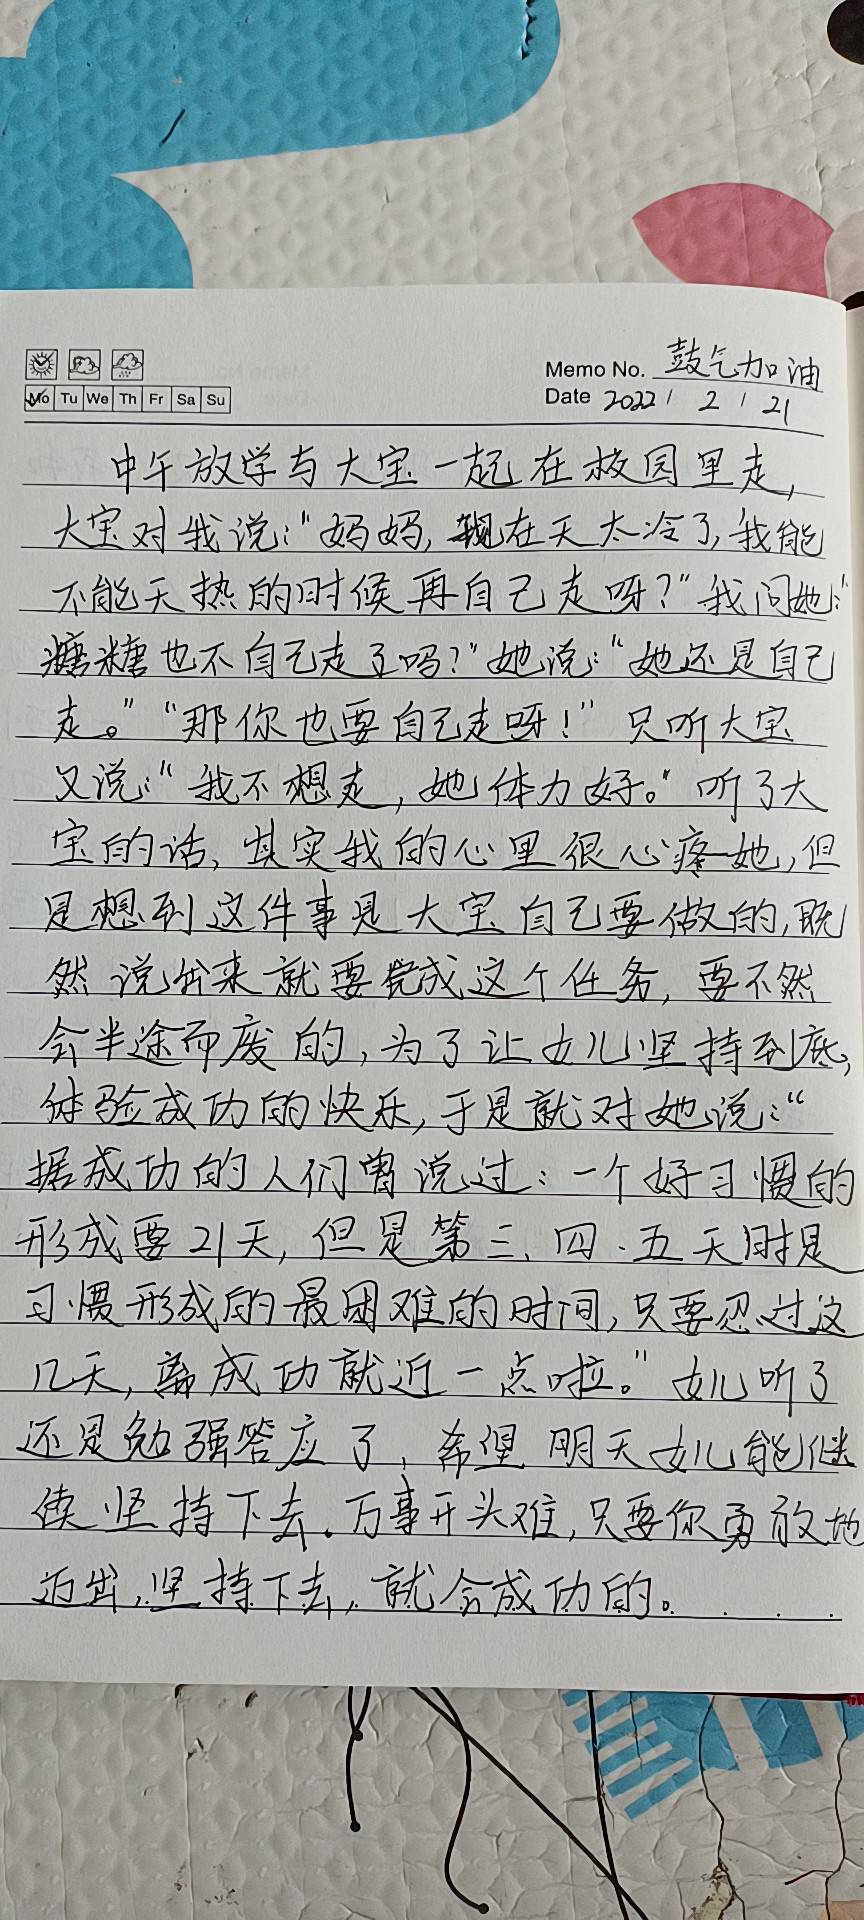 Mo Tu We Th Fr Sa Su
Memo No. 鼓气加油
Date 2022 / 2 / 21
中午放学与大宝一起在校园里走,
大宝对我说:“妈妈,现在天太冷了,我能
不能天热的时候再自己走呀?”我问她:“
糖糖也不自己走了吗?”她说:“她还是自己
走。”“那你也要自己走呀!”只听大宝
又说:“我不想走,她体力好。”听了大
宝的话,其实我的心里很心疼她,但
是想到这件事是大宝自己要做的,既
然说出来就要完成这个任务,要不然
会半途而废的,为了让女儿坚持到底,
体验成功的快乐,于是就对她说:“
据成功的人们曾说过:一个好习惯的
形成要21天,但是第三、四、五天时是
习惯形成的最困难的时间,只要忍过这
几天,离成功就近一点啦。”女儿听了
还是勉强答应了,希望明天女儿能继
续坚持下去。万事开头难,只要你勇敢地
迈出,坚持下去,就会成功的。